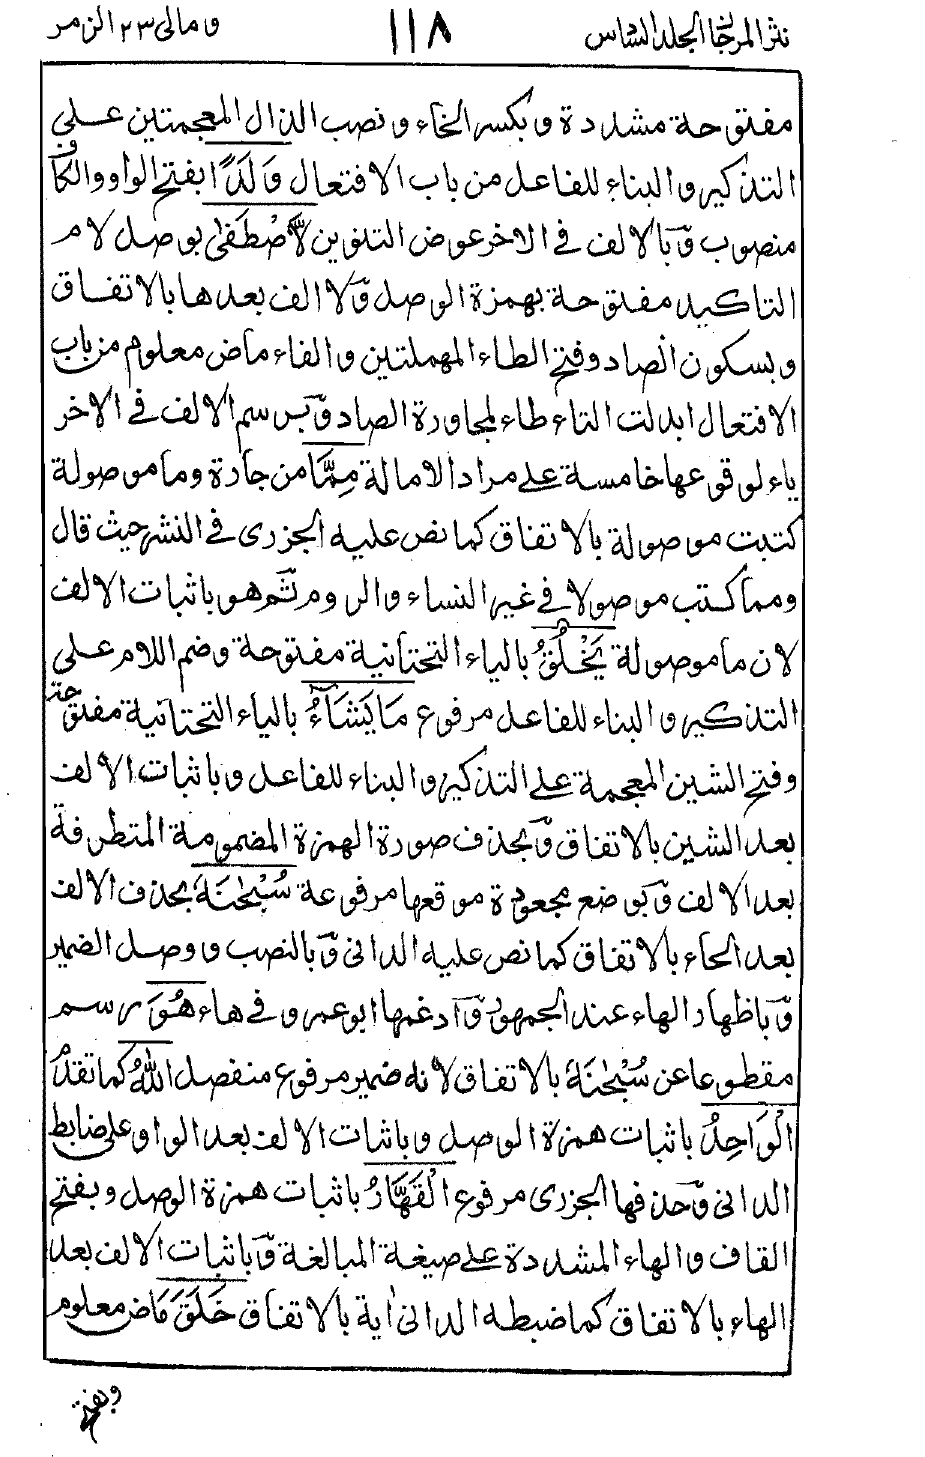 نثر المرجان الجلد السادس ١١٨ ومالى ٢٣ الزمر
مفتوحة مشددة وبكسر الخاء ونصب الذال المعجمتين على
التذكير والبناء للفاعل من باب الافتعال وَلَدًا بفتح الواو والكاف
منصوب وّبالالف فى الاخر عوض التنوين لَّاصْطَفىٰ بوصل لام
التاكيد مفتوحة بهمزة الوصل وّلا الف بعدها بالاتفاق
وبسكون الصاد وفتح الطاء المهملتين والفاء ماض معلوم من باب
الافتعال ابدلت التاء طاء لمجاورة الصاد وّبرسم الالف فى الاخر
ياء لوقوعها خامسة على مراد الامالة مِمَّا من جارة وما موصولة
كتبت موصولة بالاتفاق كما نص عليه الجزرى فى النشر حيث قال
ومما كتب موصولا فى غير النساء والروم ثم هو باثبات الالف
لان ما موصولة يَخْلُقُ بالياء التحتانية مفتوحة وضم اللام على
التذكير والبناء للفاعل مرفوع مَا يَشَآءُ بالياء التحتانية مفتوحة
وفتح الشين المعجمة على التذكير والبناء للفاعل وباثبات الالف
بعد الشين بالاتفاق وّبحذف صورة الهمزة المضمومة المتطرفة
بعد الالف وّبوضع مجعودة موقعها مرفوعة سُبْحٰنَهٗ بحذف الالف
بعد الحاء بالاتفاق كما نص عليه الدانى وّبالنصب ووصل الضمير
وّباظهار الهاء عند الجمهور وّادغمها ابو عمرو فى هاء هُوَ برسم
مقطوعا عن سُبْحٰنَهٗ بالاتفاق لانه ضمير مرفوع منفصل اللّٰهُ كما تقدم
الْوَاحِدُ باثبات همزة الوصل وباثبات الالف بعد الواو على ضابط
الدانى وّحذفها الجزرى مرفوع الْقَهَّارُ باثبات همزة الوصل وبفتح
القاف والهاء المشددة على صيغة المبالغة وّباثبات الالف بعد
الهاء بالاتفاق كما ضبطه الدانى اٰية بالاتفاق خَلَقَ ماض معلوم
وبفتح